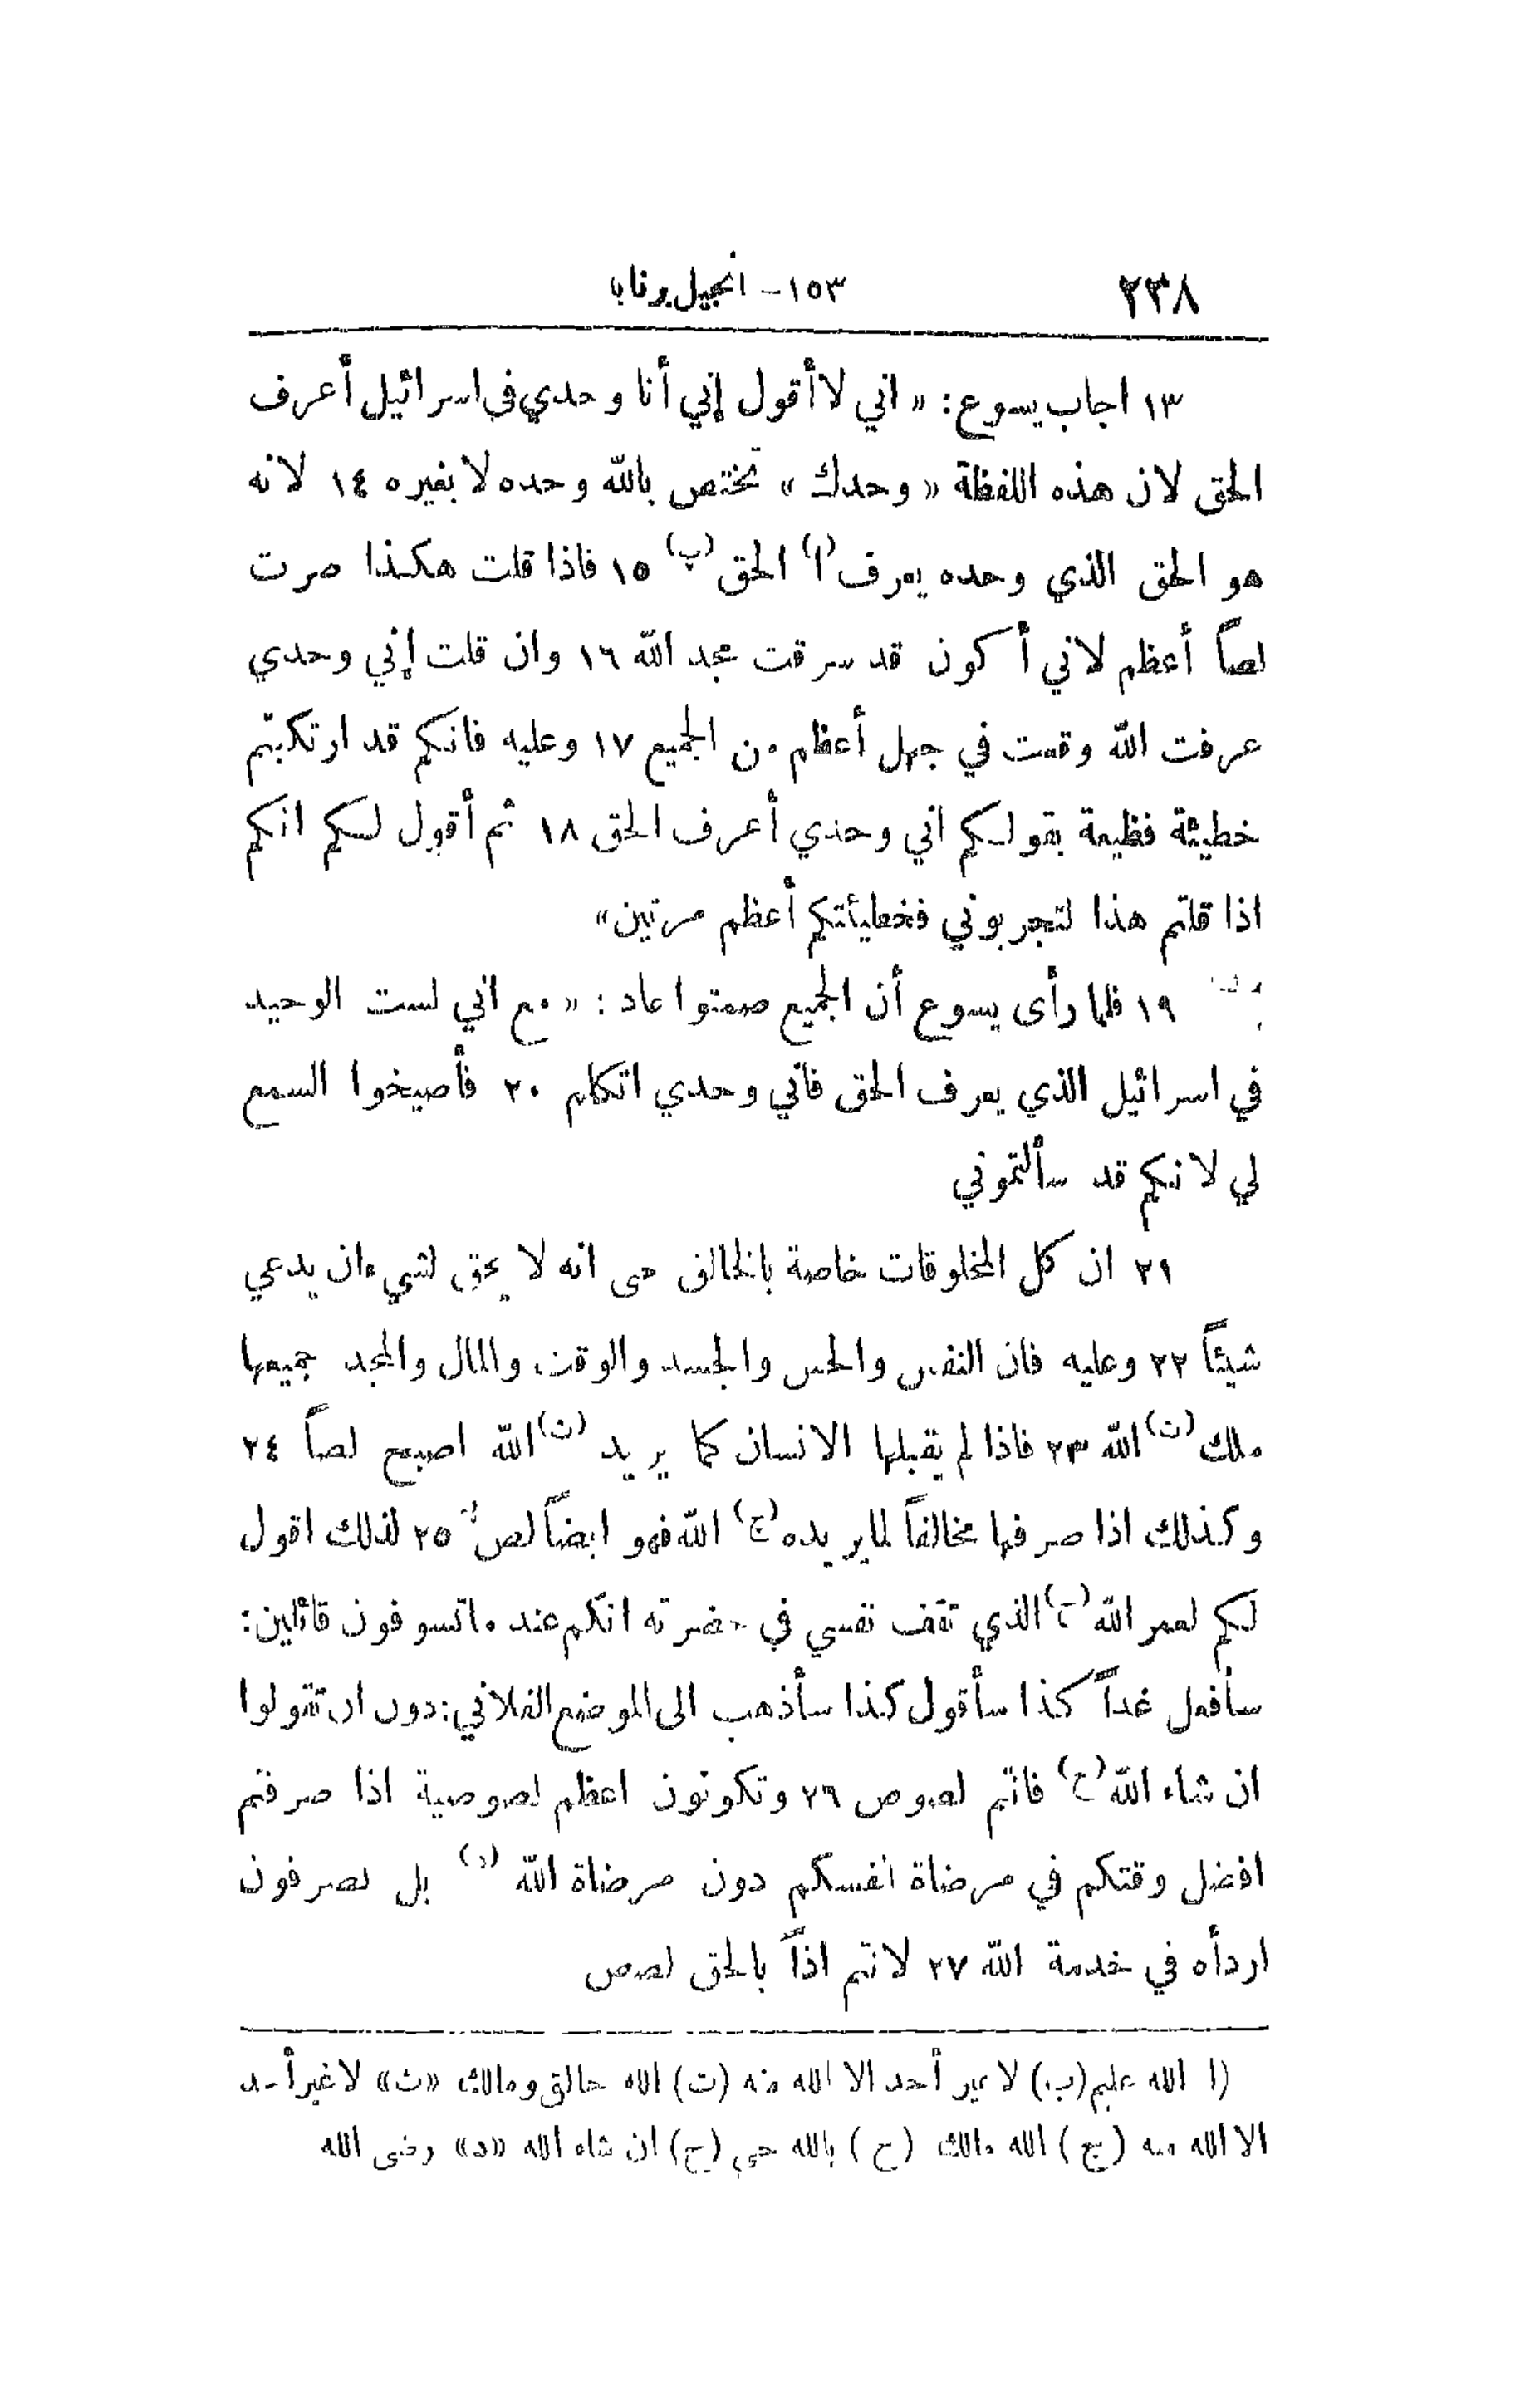 ٢٣٨ ١٥٣ - انجيل برنابا
١٣ اجاب يسوع: « اني لا أقول إني أنا وحدي في اسرائيل أعرف
الحق لان هذه اللفظة « وحدك » تختص بالله وحده لا بغيره ١٤ لانه
هو الحق الذي وحده يعرف (ا) الحق (ب) ١٥ فاذا قلت هكذا صرت
لصاً أعظم لاني أكون قد سرقت مجد الله ١٦ وان قلت إني وحدي
عرفت الله وقعت في جهل أعظم من الجميع ١٧ وعليه فانكم قد ارتكبتم
خطيئة فظيعة بقولكم اني وحدي أعرف الحق ١٨ ثم أقول لكم انكم
اذا قلتم هذا لتجربوني فخطيئتكم أعظم مرتين»
١٩ فلما رأى يسوع أن الجميع صمتوا عاد : « مع اني لست الوحيد
في اسرائيل الذي يعرف الحق فاني وحدي اتكلم ٢٠ فأصيخوا السمع
لي لانكم قد سألتموني
٢١ ان كل المخلوقات خاصة بالخالق حتى انه لا يحق لشيء ان يدعي
شيئاً ٢٢ وعليه فان النفس والحس والجسد والوقت والمال والمجد جميعها
ملك (ت) الله ٢٣ فاذا لم يقبلها الانسان كما يريد (ث) الله اصبح لصاً ٢٤
وكذلك اذا صرفها مخالفاً لما يريده (ج) الله فهو ايضاً لص ٢٥ لذلك اقول
لكم لعمر الله (ح) الذي تقف نفسي في حضرته انكم عند ما تسوفون قائلين:
سأفعل غداً كذا سأقول كذا سأذهب الى الموضع الفلاني: دون ان تقولوا
ان شاء الله (خ) فانتم لصوص ٢٦ وتكونون اعظم لصوصية اذا صرفتم
افضل وقتكم في مرضاة انفسكم دون مرضاة الله (د) بل تصرفون
اردأه في خدمة الله ٢٧ لانتم اذاً بالحق لصوص
(ا الله عليم (ب) لا غير أحد الا الله منه (ت) الله خالق ومالك «ث» لا غير أحد
الا الله منه (ج) الله مالك (ح) بالله حي (خ) ان شاء الله «د» رضى الله